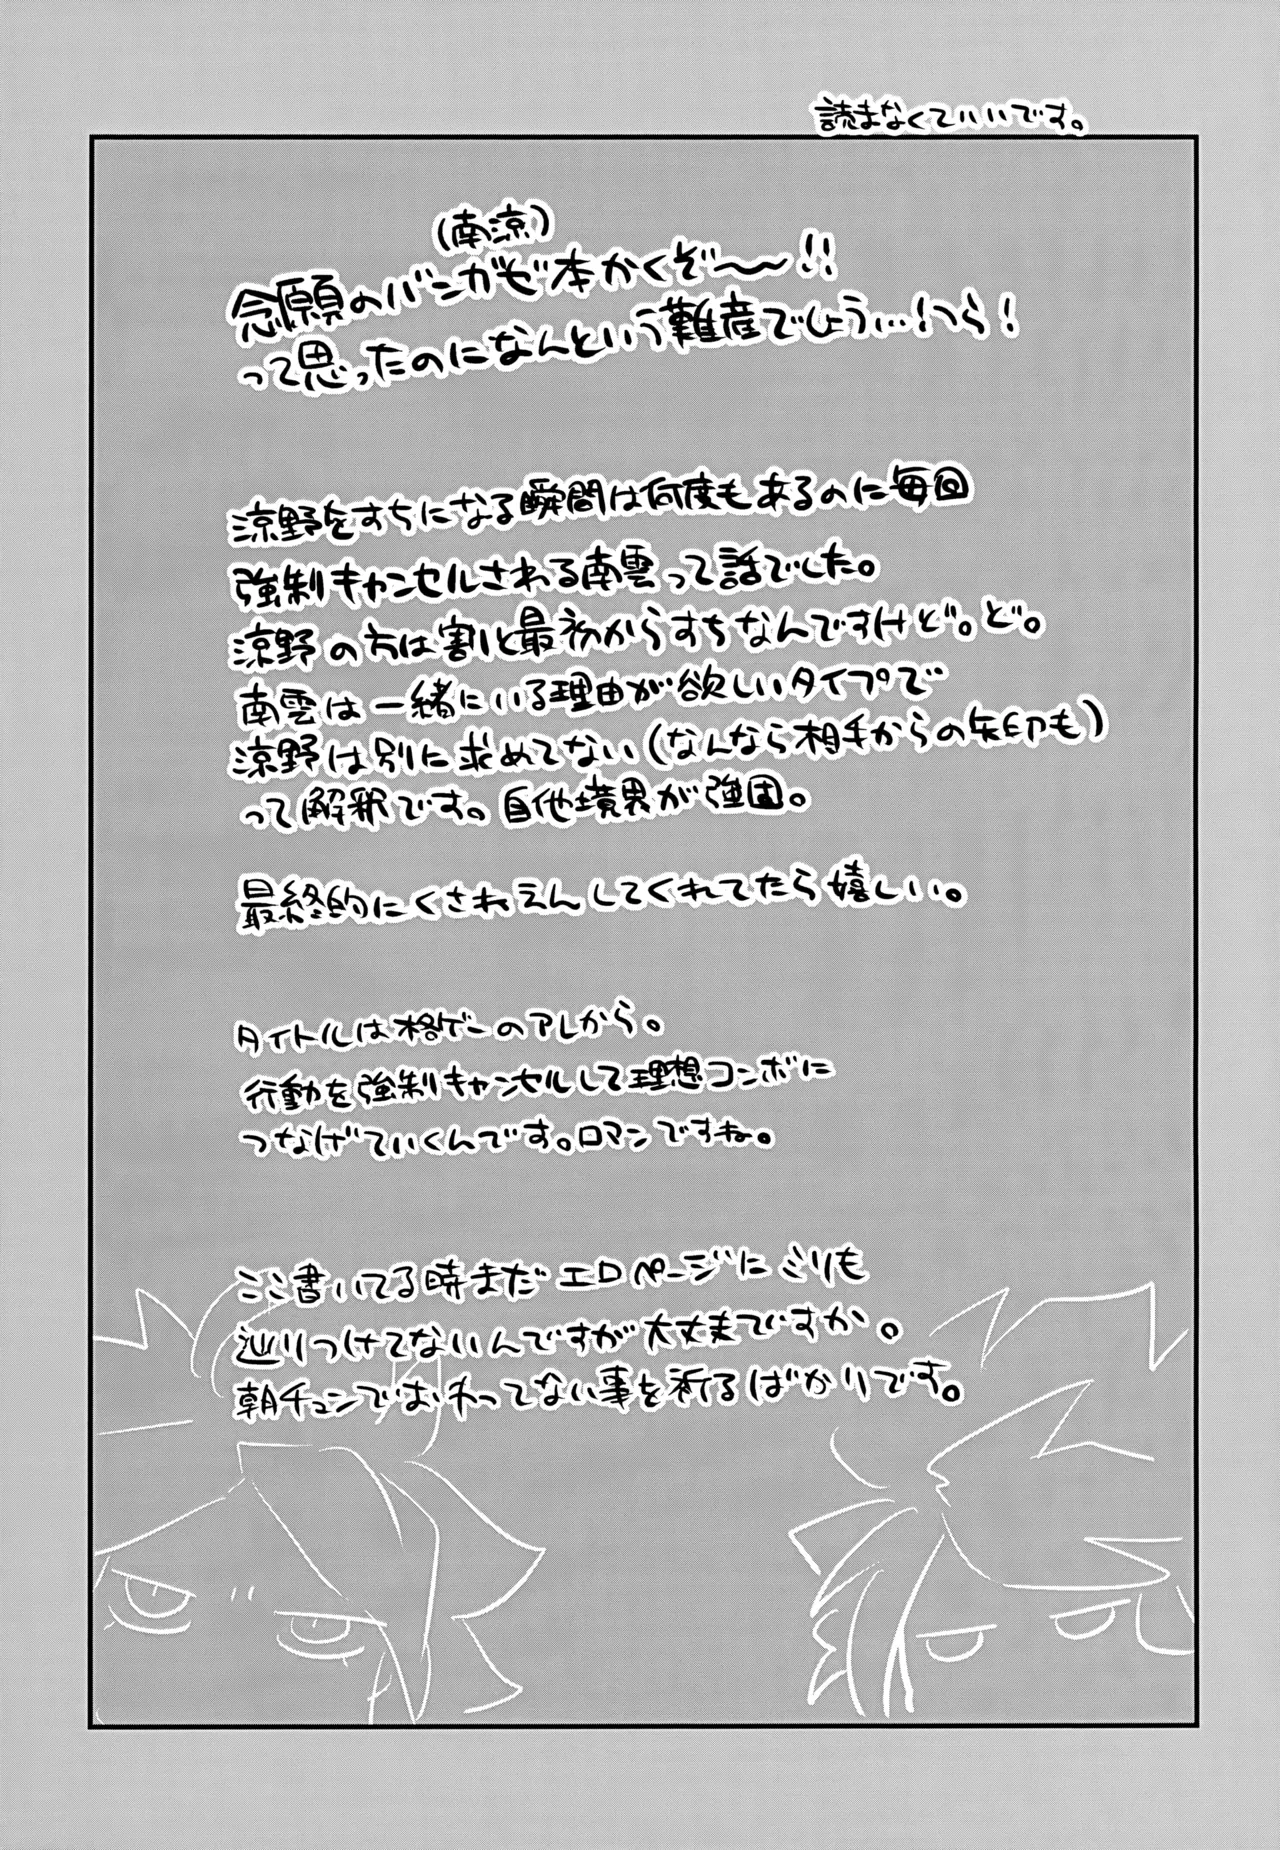 読まなくていいです。
(南涼)
念願のバンガゼ本かくぞ〜〜!!
って思ったのになんという難産でしょう…!つら!
涼野をすちになる瞬間は何度もあるのに毎回
強制キャンセルされる南雲って話でした。
涼野の方は割と最初からすちなんですけど。ど。
南雲は一緒にいる理由が欲しいタイプで
涼野は別に求めてない(なんなら相手からの矢印も)
って解釈です。自他境界が強固。
最終的にくされえんしてくれてたら嬉しい。
タイトルは格ゲーのアレから。
行動を強制キャンセルして理想コンボに
つなげていくんです。ロマンですね。
ここ書いてる時まだエロページにミリも
辿りつけてないんですが大丈夫ですか。
朝チュンでおわってない事を祈るばかりです。